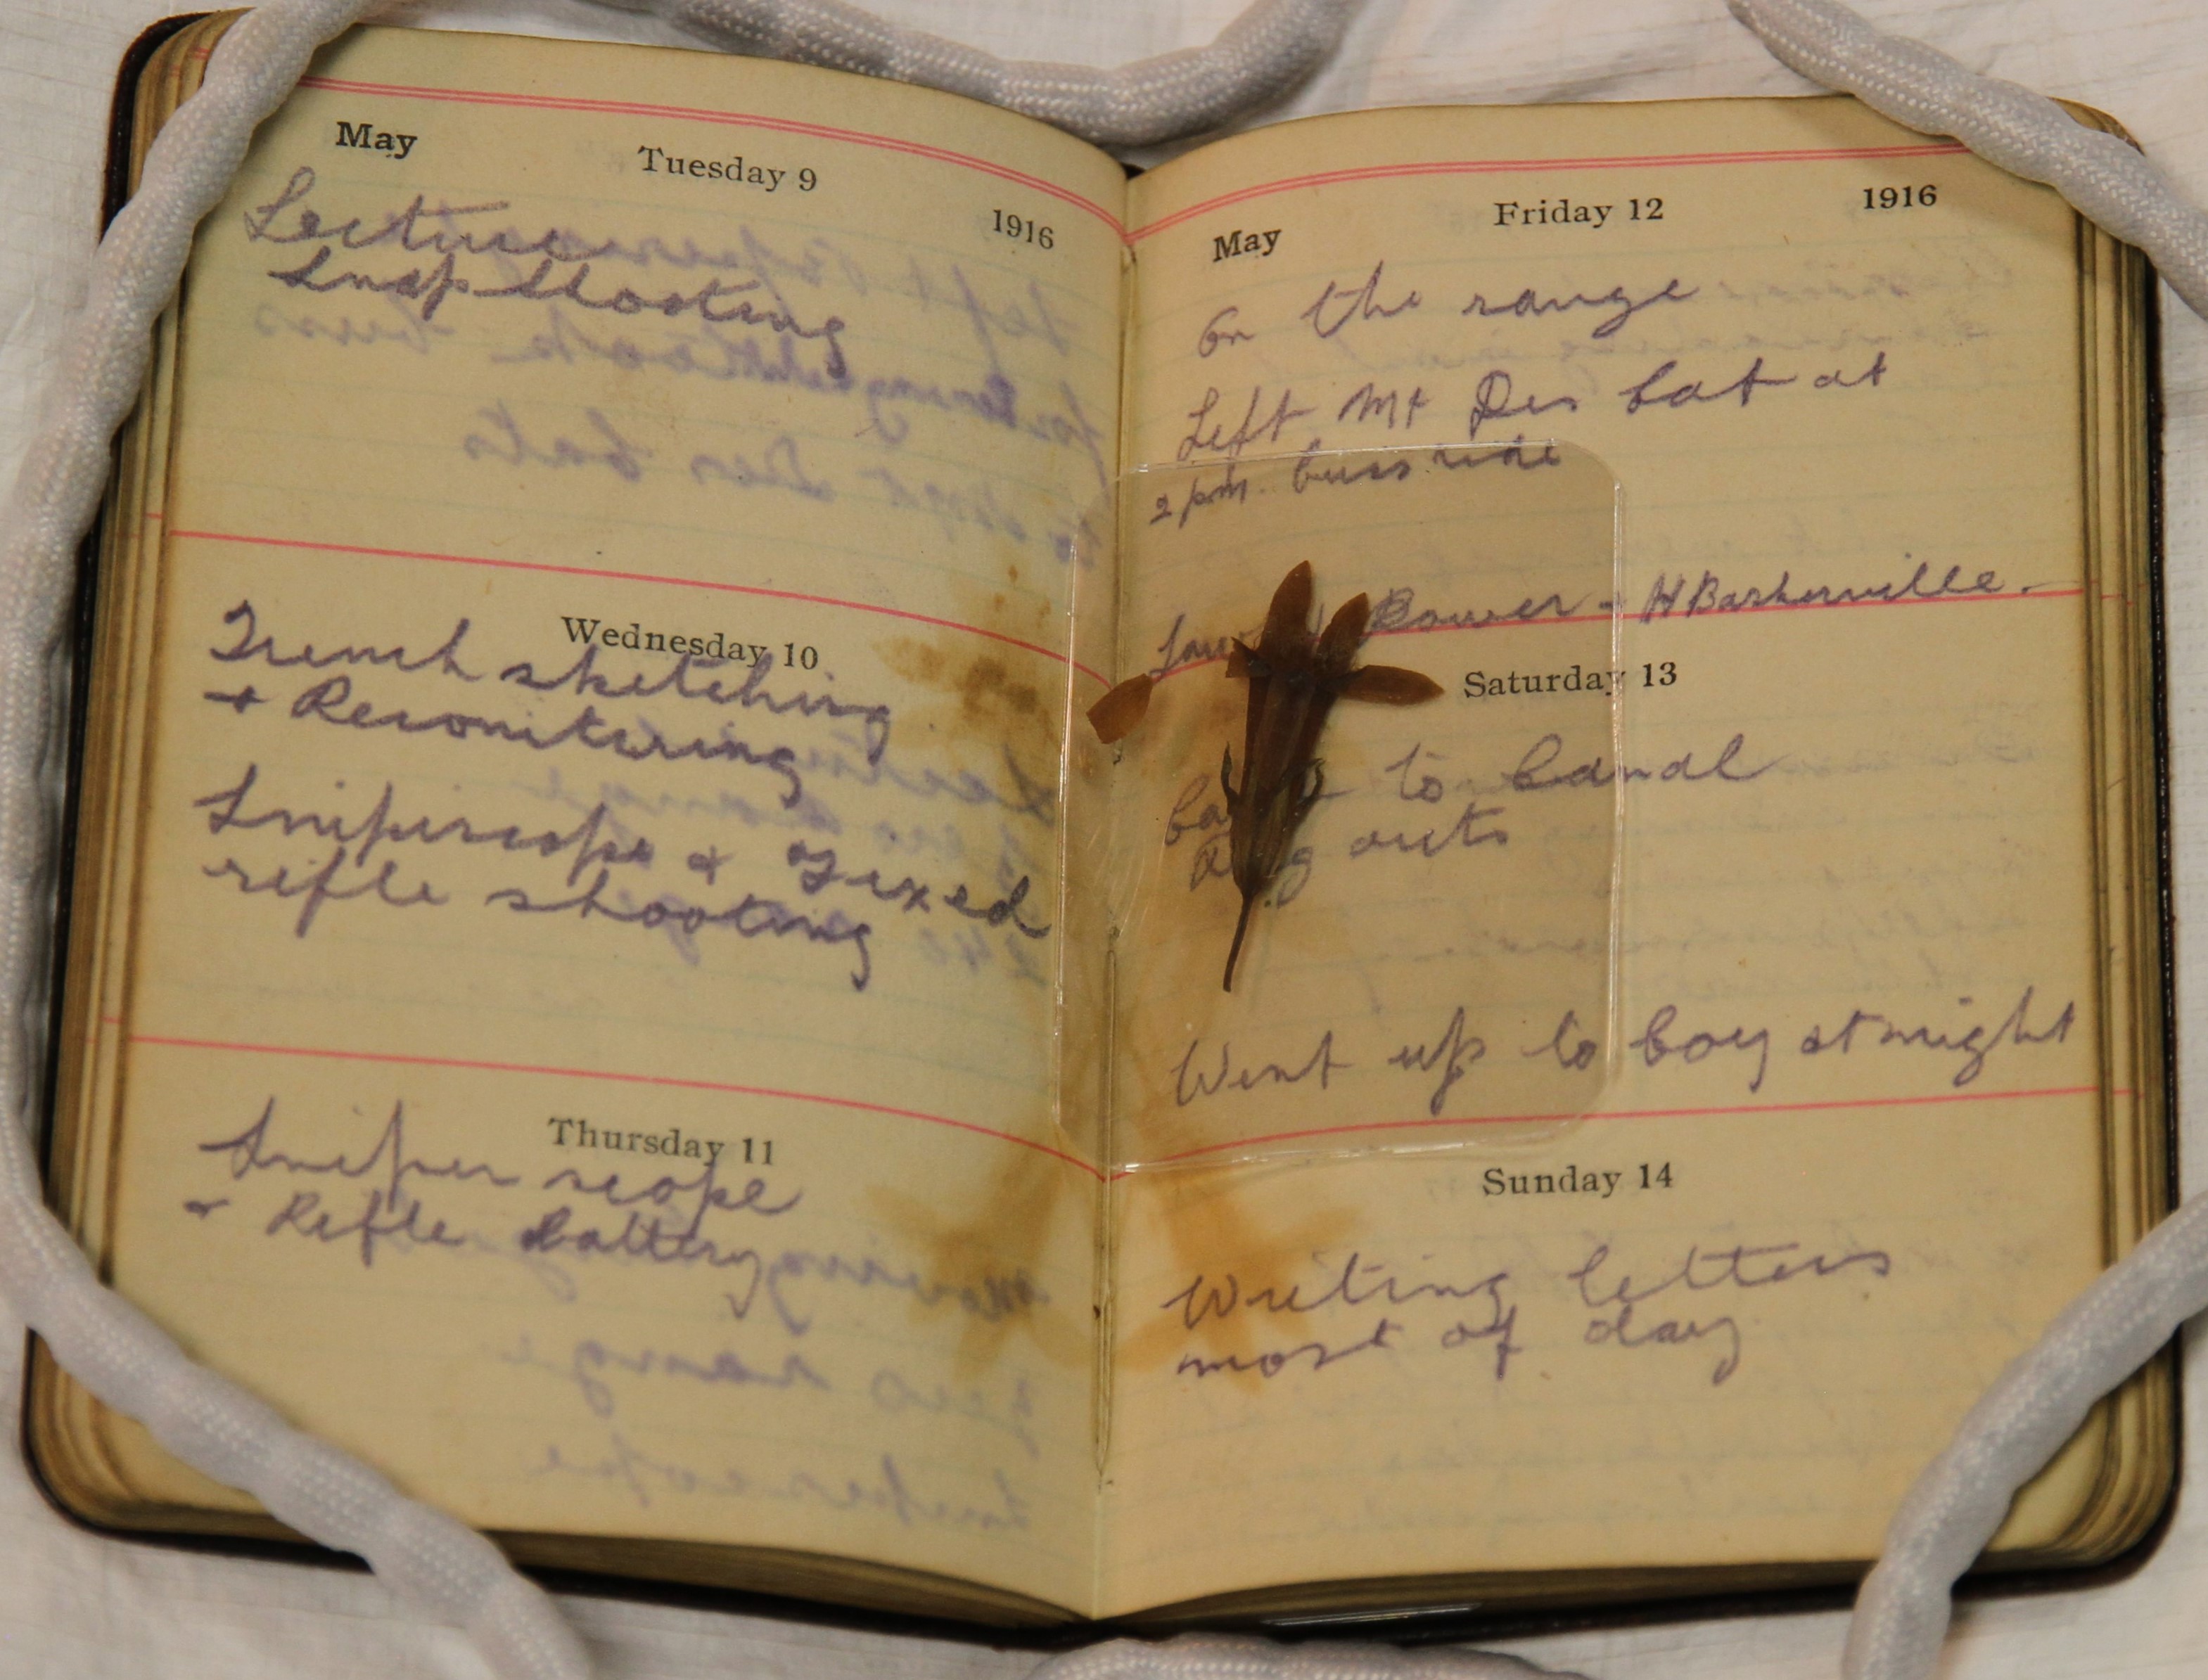 May
Tuesday 9
1916
Lecture
Snap Shooting
Wednesday 10
Trench sketching
+ Reconitering
Sniperscope & Fixed
rifle shooting
Thursday 11
Sniper scope
+ Rifle Battery
May
Friday 12
1916
On the range
Left Mt Des bat at
2 pm. buss ride
Bower - H Baskerville.
Saturday 13
to Canal
Dug outs
Went up to Coy at night
Sunday 14
Writing letters
most of day